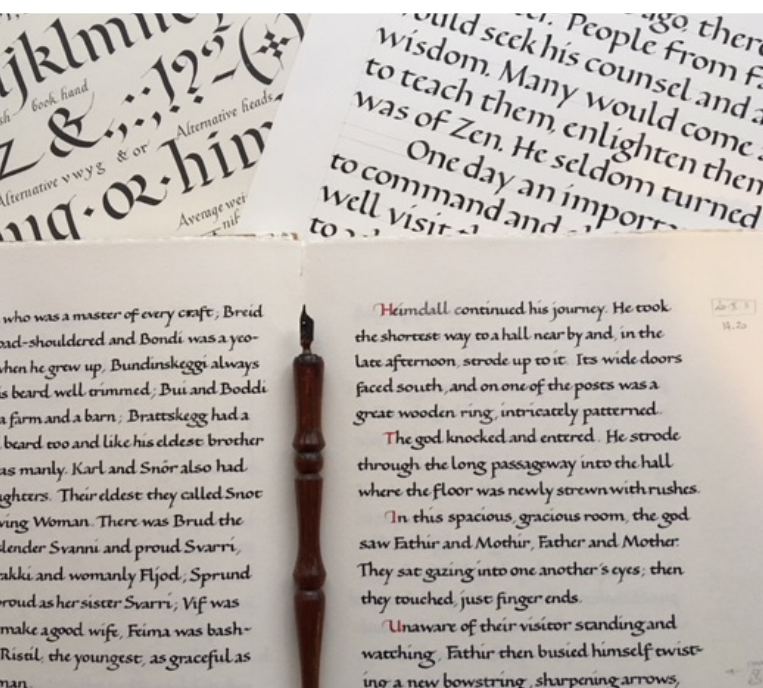 ijklmno
book hand
z &.,:;!?
Alternative v w y g & or Alternative heads
ng·or·him
Average
ago, there
ould seek his counsel and a
r. People from f
wisdom. Many would come
to teach them, enlighten them
was of Zen. He seldom turned
One day an import
to command and
well visit
to
who was a master of every craft; Breid
oad-shouldered and Bondi was a yeo-
when he grew up, Bundinskeggi always
s beard well trimmed; Bui and Boddi
a farm and a barn; Brattskegg had a
beard too and like his eldest brother
as manly. Karl and Snör also had
ughters. Their eldest they called Snot
ving Woman. There was Brud the
slender Svanni and proud Svarri,
akki and womanly Fljod; Sprund
roud as her sister Svarri; Vif was
make a good wife, Feima was bash-
Ristil, the youngest, as graceful as
man.
Heimdall continued his journey. He took
the shortest way to a hall near by and, in the
late afternoon, strode up to it. Its wide doors
faced south, and on one of the posts was a
great wooden ring, intricately patterned.
The god knocked and entered. He strode
through the long passageway into the hall
where the floor was newly strewn with rushes.
In this spacious, gracious room, the god
saw Fathir and Mothir, Father and Mother.
They sat gazing into one another's eyes; then
they touched, just finger ends.
Unaware of their visitor standing and
watching, Fathir then busied himself twist-
ing a new bowstring, sharpening arrows,
14.20